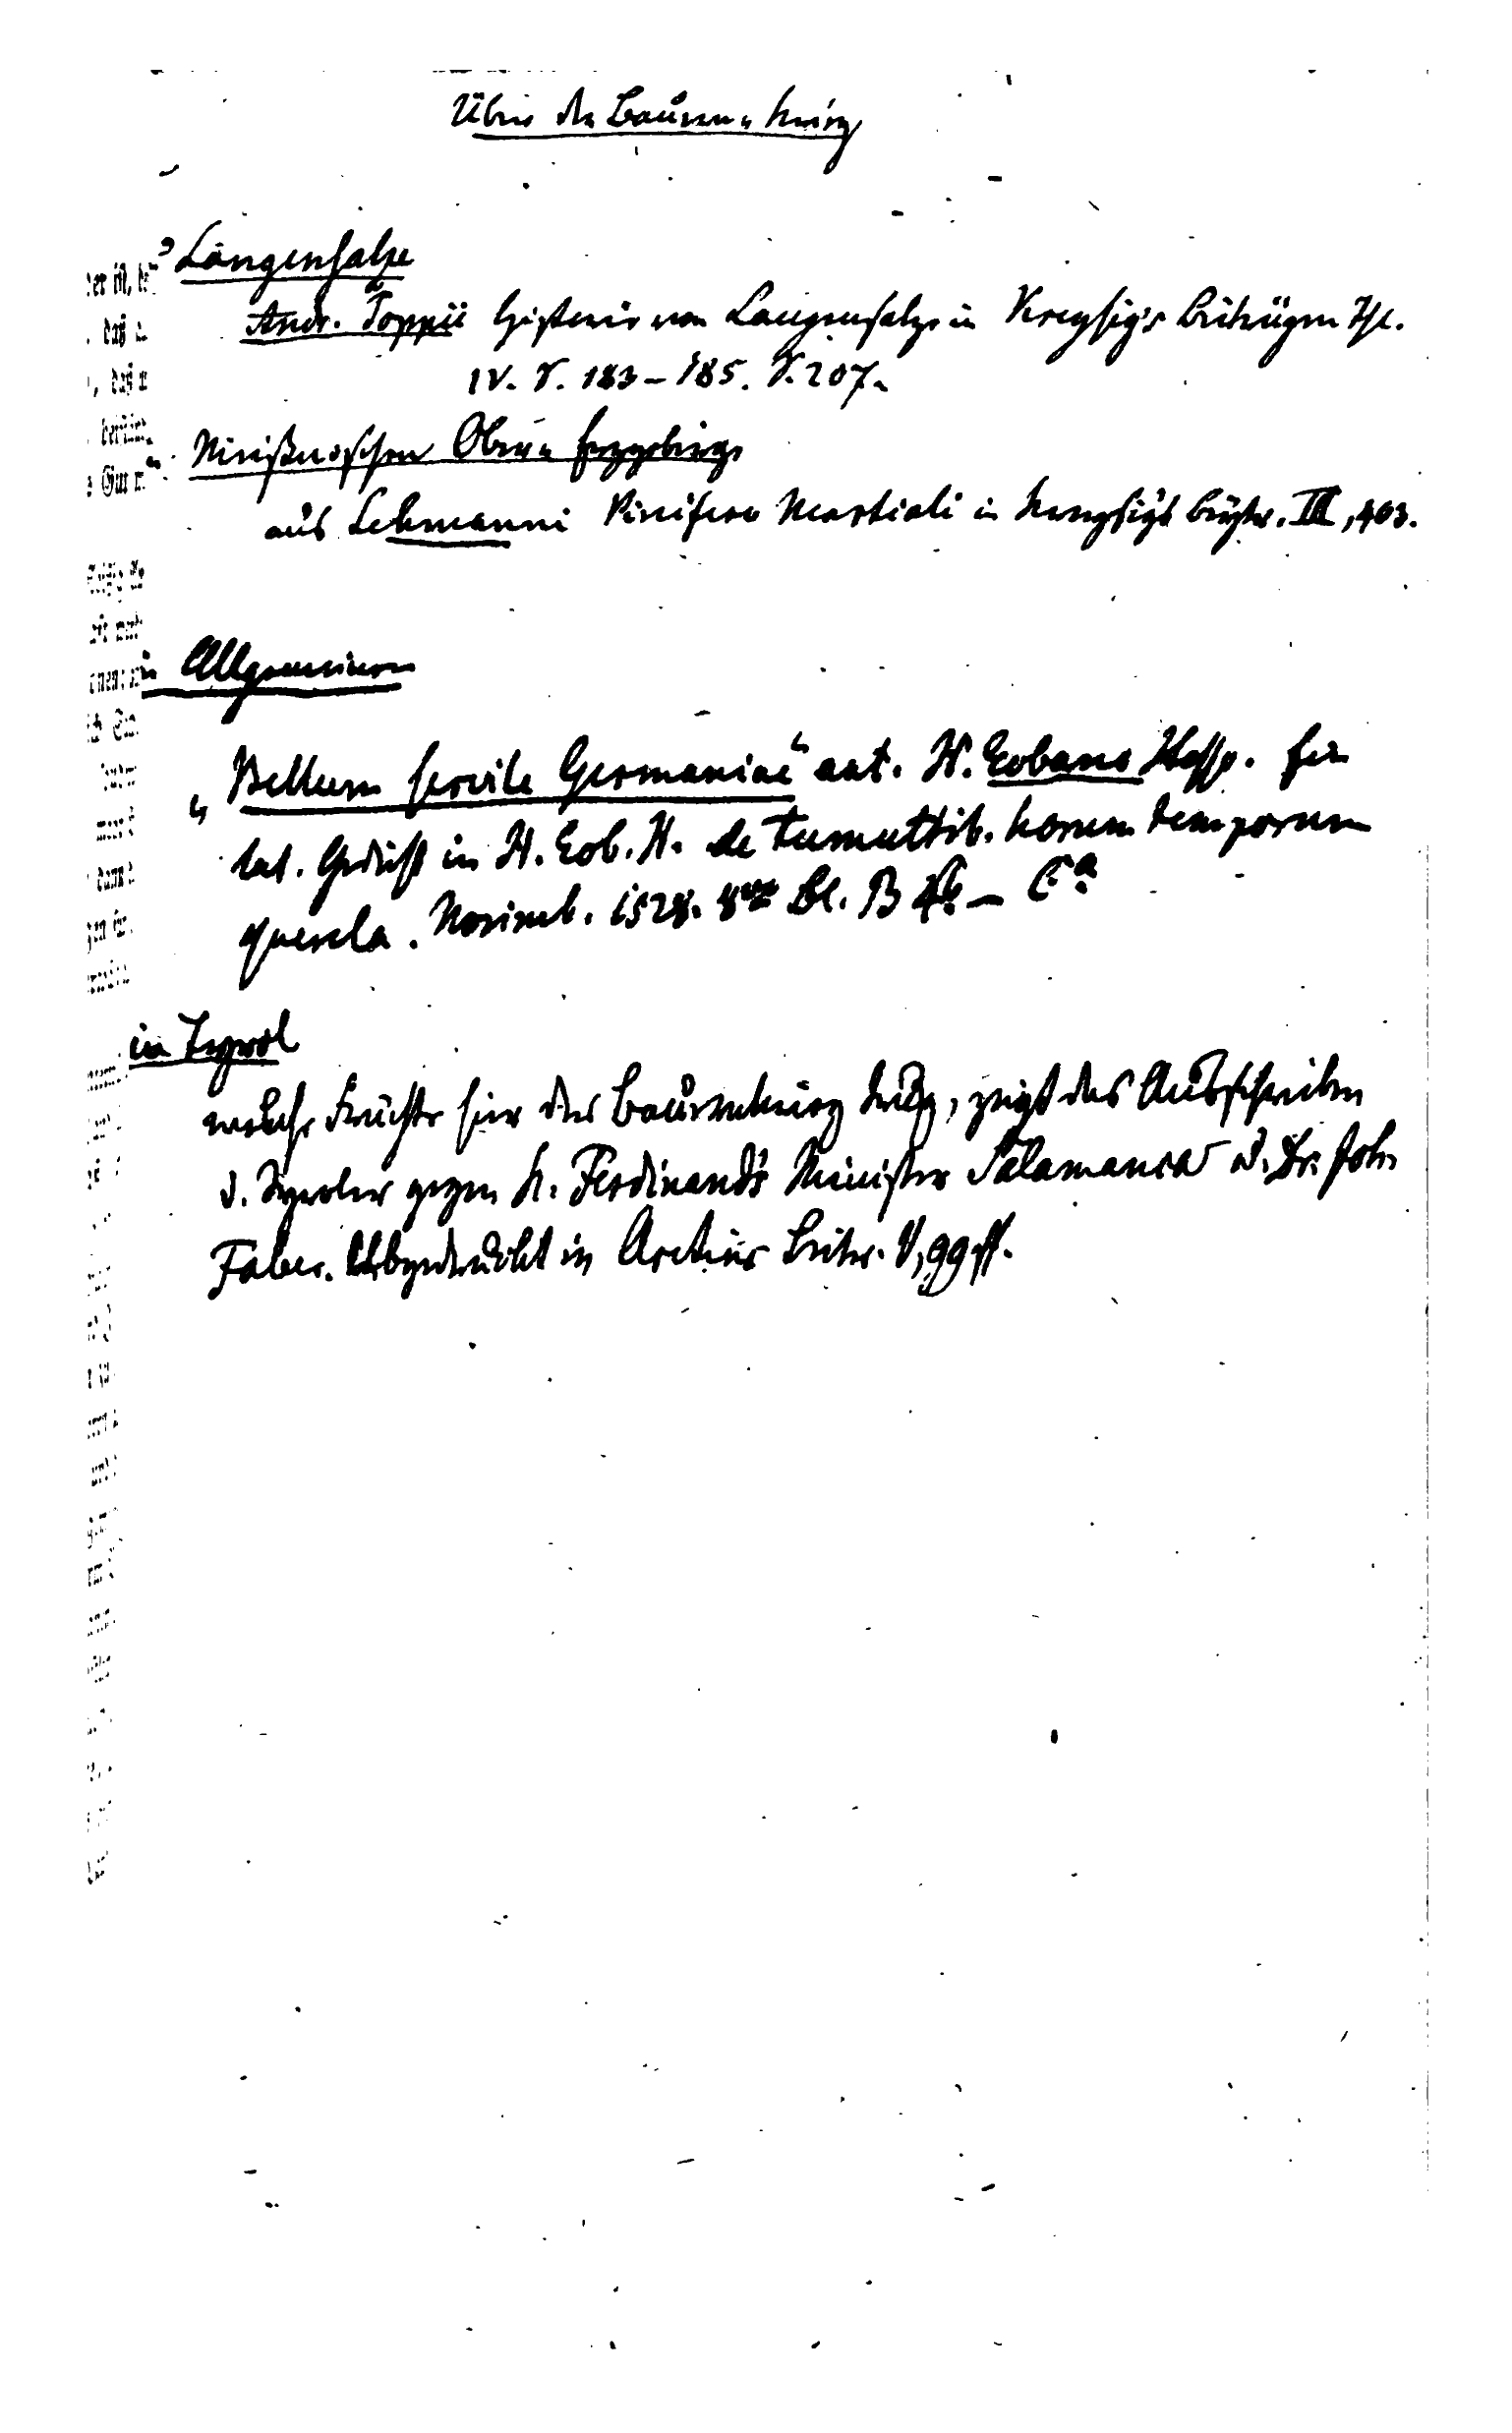 Über den Bauern-Krieg
Langensalze
Andr. Toppii Historie von Langensalze in Kreysig's Beiträgen Thl.
IV. S. 183–185. S. 207.
Meißnischen Ober-Erzgebirge
aus Lehmanni Pinifero Martiali in Kreysig's Beytr. III, 403.
in Allgemeinen
„Bellum servile Germaniae“ aut. H. Eobano Hesso. Ein
lat. Gedicht in H. Eob. H. de tumultib. horum temporum
querela. Norimb. 1528. 8vo Bl. B 4b – Ca
in Tyrol
welche Früchte hier der Bauernkrieg trug, zeigt das Ausschreiben
d. Tyroler gegen K. Ferdinand's Minister Salamanca u. Dr. Joh.
Faber. Abgedruckt in Aretins Beitr. V, 99 ff.